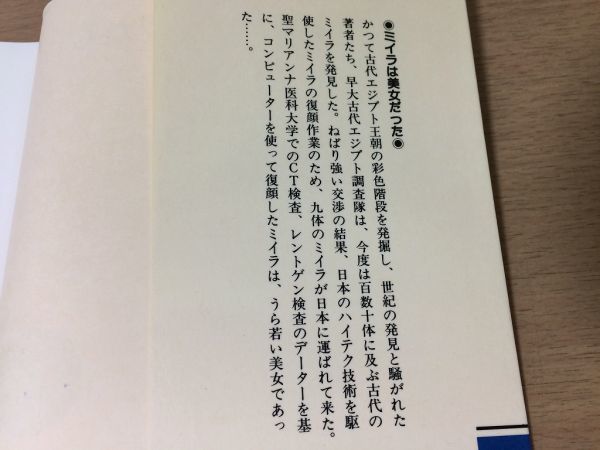 ●ミイラは美女だった●
かつて古代エジプト王朝の彩色階段を発掘し、世紀の発見と騒がれた
著者たち、早大古代エジプト調査隊は、今度は百数十体に及ぶ古代の
ミイラを発見した。ねばり強い交渉の結果、日本のハイテク技術を駆
使したミイラの復顔作業のため、九体のミイラが日本に運ばれて来た。
聖マリアンナ医科大学でのCT検査、レントゲン検査のデーターを基
に、コンピューターを使って復顔したミイラは、うら若い美女であっ
た……。